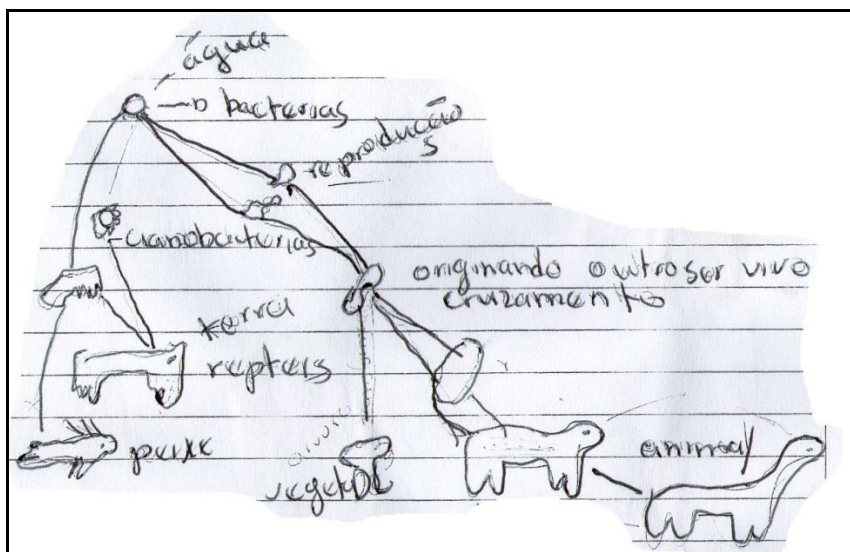 água
bacterias
reprodução
s
cianobacterias
originando outro ser vivo
cruzamento
terra
repteis
peixe
vegetal
animal